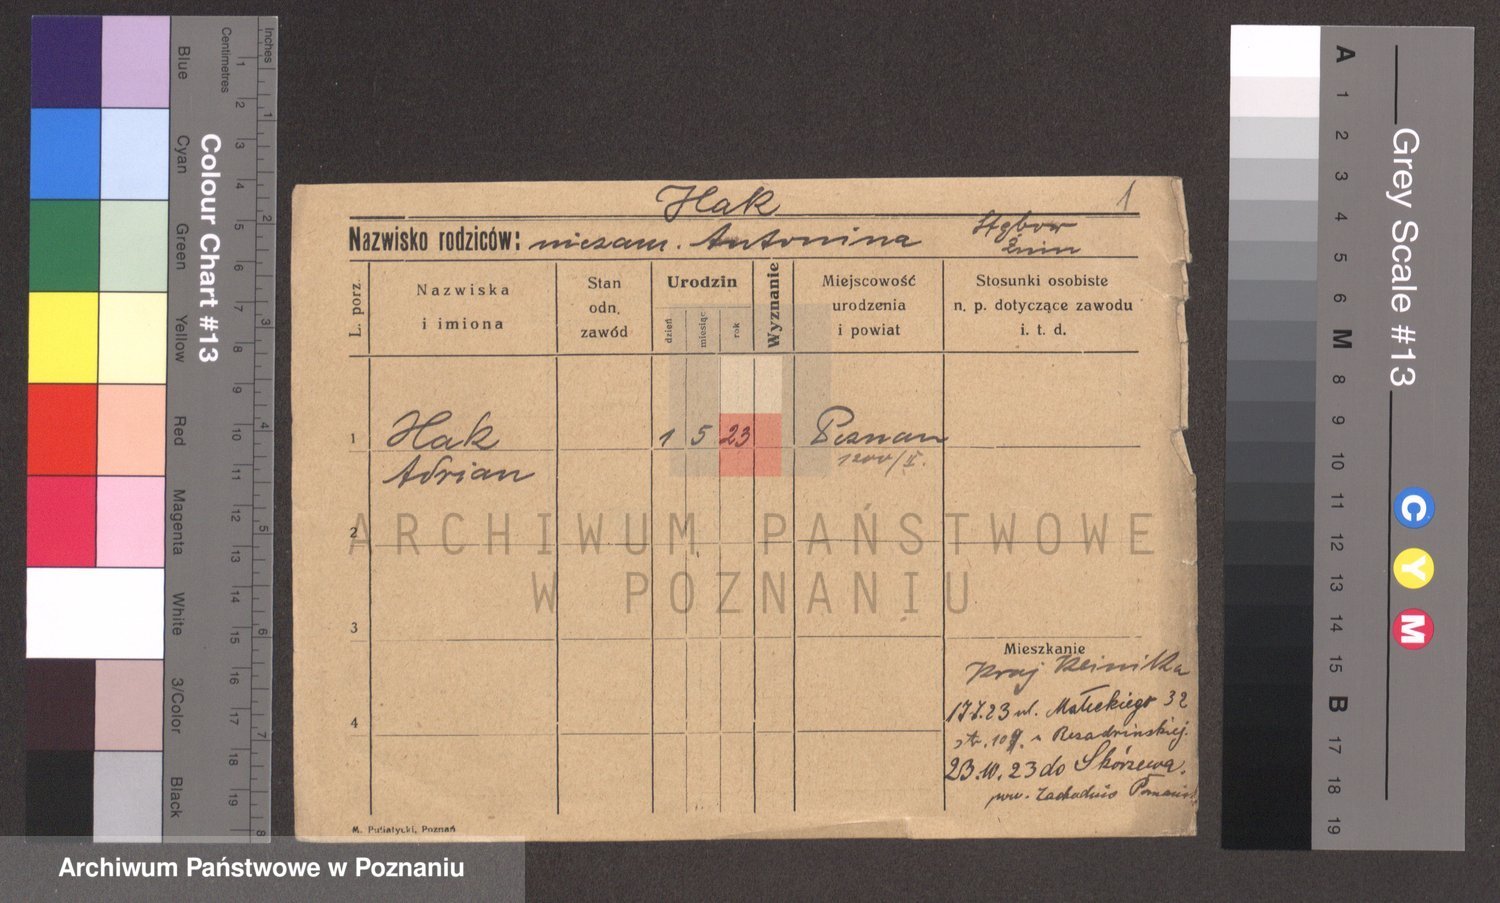 Hak
1
Nazwisko rodziców: niezam. Antonina
Żnin
L. porz.
Nazwiska
i imiona
Stan
odn.
zawód
Urodzin
dzień
miesiąc
rok
Wyznanie
Miejscowość
urodzenia
i powiat
Stosunki osobiste
n. p. dotyczące zawodu
i. t. d.
1
Hak
Adrian
1 5 23
Poznań
1200/II.
2
3
4
Mieszkanie
Kraj Klinika
17.7.23 ul. Małeckiego 32
str. 109.
23.10.23 do Skórzewa.
pow. Zachodnio
M. Putiatycki, Poznań
ARCHIWUM PAŃSTWOWE
W POZNANIU
Archiwum Państwowe w Poznaniu
Colour Chart #13
Blue
Cyan
Green
Yellow
Red
Magenta
White
3/Color
Black
Centimetres
1
2
3
4
5
6
7
8
9
10
11
12
13
14
15
16
17
18
19
Inches
1
2
3
4
5
6
7
8
Grey Scale #13
A
1
2
3
4
5
6
M
8
9
10
11
12
13
14
15
B
17
18
19
C
Y
M